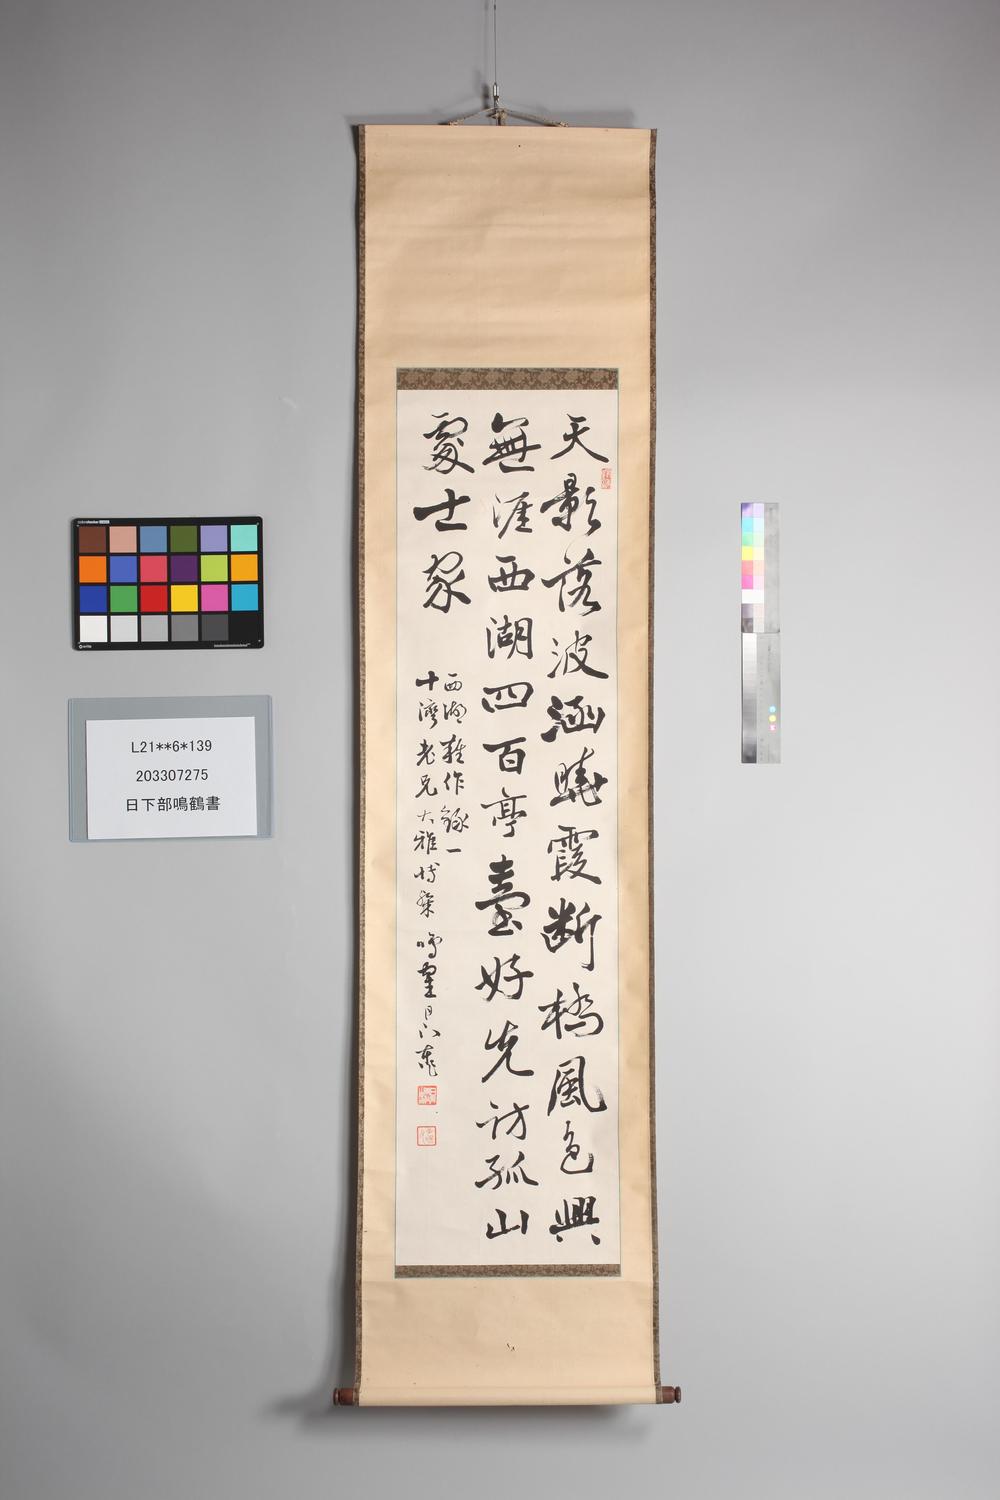 天影落波涵曉霞断橋風色興
無涯西湖四百亭臺好先訪孤山
處士家
西湖雜作錄一
十灣老兄大雅博粲 鳴鶴日下東作
L21**6*139
203307275
日下部鳴鶴書